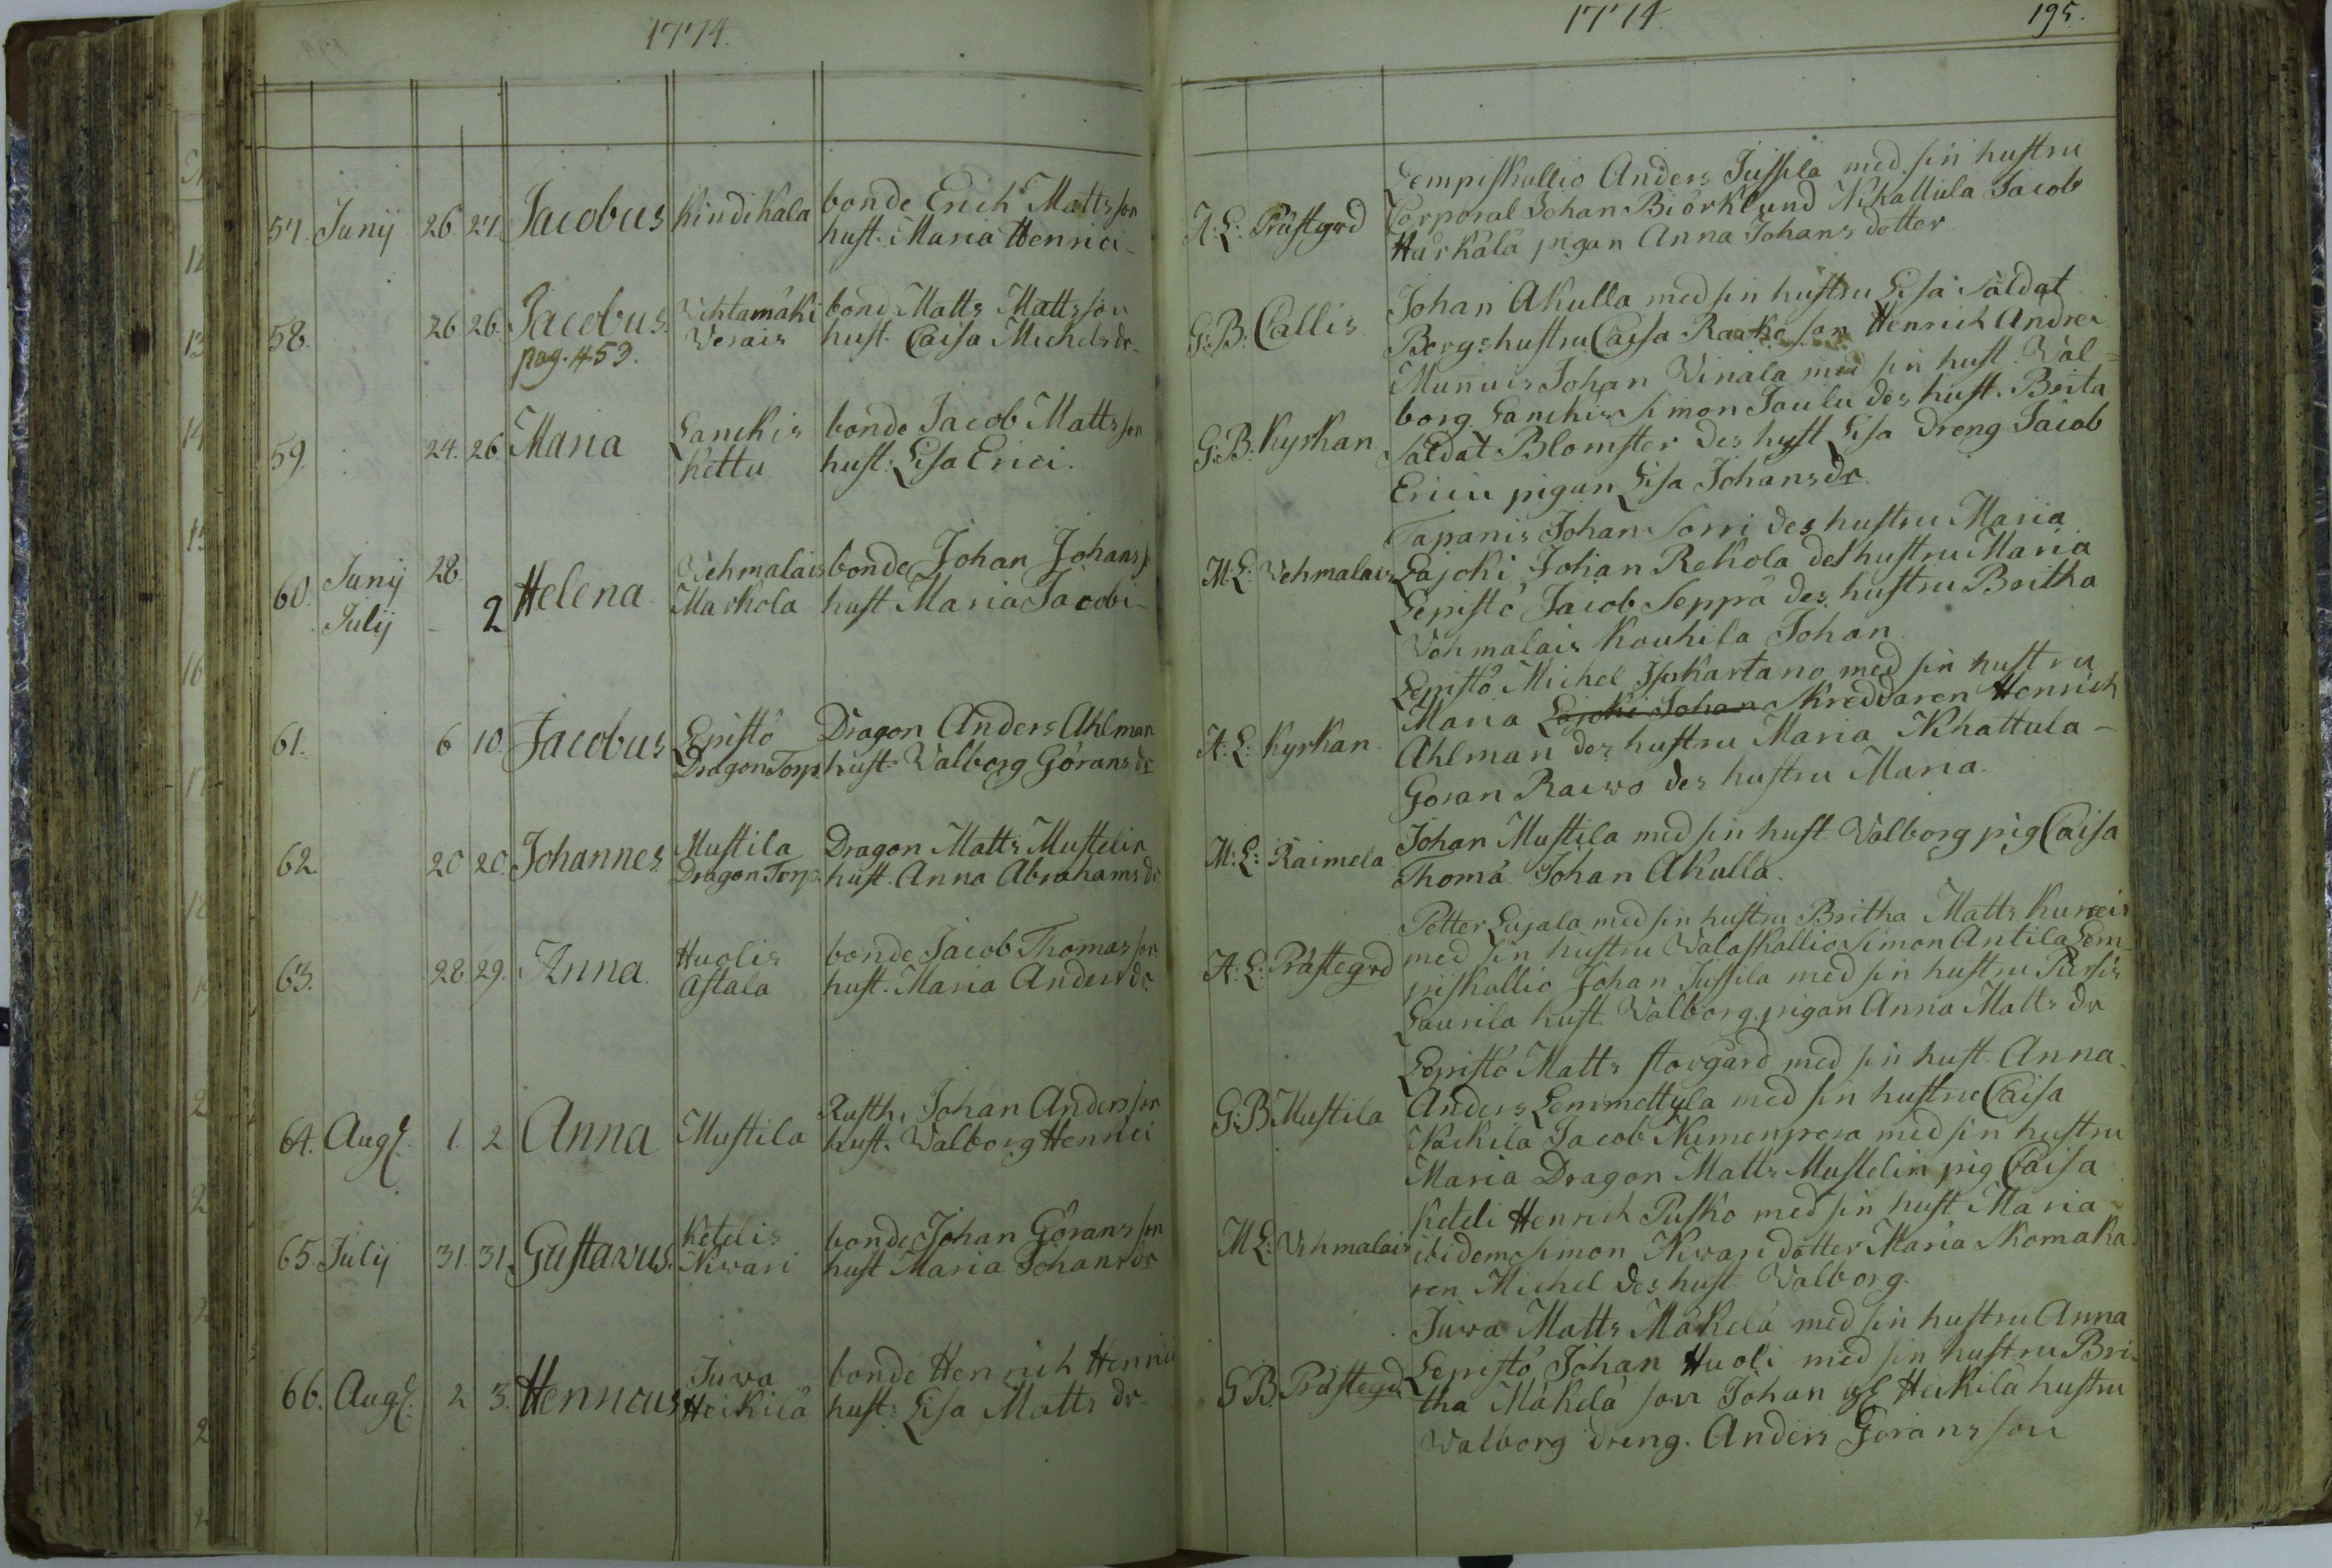 1774.
57. Junij 26 27. Jacobus Kindikala bonde Erich Mattsson
hust. Maria Henrici
58. 26 26. Jacobus Vihtamäki bond. Matts Mattsson
pag. 453. Verais hust. Caisa Michelsdr.
59. 24. 26. Maria Lanckis bonde Jacob Mattsson
Kettu hust: Lisa Erici.
60. Junij 28. Helena Vehmalais bonde Johan Johanss
Julij 2 Markola hust Maria Jacobi
61. 6 10. Jacobus Lepistö Dragon Anders Ahlman
Dragon Torp. hust. Valborg Göransdr
62. 20 20. Johannes Mustila Dragon Matts Mustelin
Dragon Torp. hust. Anna Abrahamsdr
63. 28 29. Anna Huolis bonde Jacob Thomasson
Astala hust. Maria Andersdr
64. Aug. 1. 2 Anna Mustila Rusth. Johan Andersson
hust. Valborg Henrici
65. Julij 31. 31. Gustavus Ketelis bonde Johan Göransson
Nivari hust Maria Johansdr
66. Aug. 2 3. Henricus Juva bonde Henrich Henrici
Heikilä hust: Lisa Matts dr
1774. 195.
Lempiskallio Anders Jussila med sin hustru
A: L: Prästgrd Corporal Johan Biörklund Nikattula Jacob
Härkälä pigan Anna Johans dotter
Johan Akulla med sin hustru Lisa Saldat
G: B: Callis Bergs hustru Caisa Raako son Henrich Andrei
Munuis Johan Vinala med sin hust. Val-
borg Lanckis Simon Joulu des hust. Brita
G: B: Kyrkan Saldat Blomster des hust Lisa dreng Jacob
Erici pigan Lisa Johansdr.
Tapanis Johan Sorri des hustru Maria
M: L: Vehmalais Lajoki Johan Rekola des hustru Maria
Lepistö Jacob Seppä des hustru Britha
Vehmalais Kouhila Johan
Lepistö Michel Isokartano med sin hustru
Maria Lajoki Johan Skreddaren Henrich
A: L: Kyrkan Ahlman des hustru Maria Nikattula
Göran Raiwo des hustru Maria.
M: L: Raimela Johan Mustila med sin hust Valborg pig Caisa
Thomä Johan Akulla.
Petter Lujala med sin hustru Britha Matts
A: L: Prästegrd med sin hustru Valaskallio Simon Antila Lem-
piskallio Johan Jussila med sin hustru
Laurila hust Valborg. pigan Anna Matts dr
Lepistö Matts storgård med sin hust. Anna
G: B Mustila Anders Lemmettyla med sin hustru Caisa
Näkkilä Jacob Niemenpera med sin hustru
Maria Dragon Matts Mustelin pig Caisa
Keteli Henrich Pusko med sin hust Maria
M L: Vehmalais ibidem Simon Nivari dotter Maria Skomaka-
ren Michel des hust Valborg.
Juva Matts Mäkelä med sin hustru Anna
G B. Prästegd. Lepistö Johan Huoli med sin hustru Bri-
tha Mäkelä son Johan Heikilä hustru
Walborg dreng. Anders Görans son